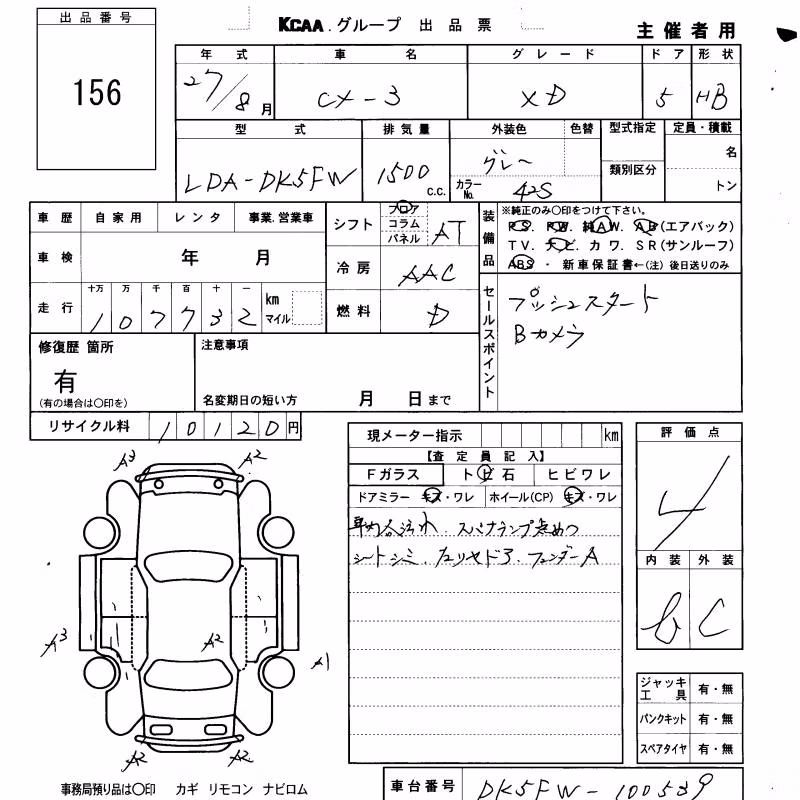 出品番号
156
KCAA.グループ 出品票
主催者用
年式 車名 グレード ドア 形状
27/8月 CX-3 XD 5 HB
型式 排気量 外装色 色替 型式指定 定員・積載
LDA-DK5FW 1500 c.c. グレー 類別区分 名
カラーNo. 42S トン
車歴 自家用 レンタ 事業.営業車
シフト フロア コラム パネル AT
車検 年 月
冷房 AAC
走行 十万 万 千 百 十 一
107732 km マイル
燃料 D
装備品 ※純正のみ〇印をつけて下さい。
PS. PW. 純AW. AB(エアバック)
TV. ナビ. カワ. SR(サンルーフ)
ABS ・ 新車保証書←(注) 後日送りのみ
セールスポイント プッシュスタート
Bカメラ
修復歴 箇所 注意事項
有
(有の場合は〇印を) 名変期日の短い方 月 日まで
リサイクル料 10120円
現メーター指示 km
【査定員記入】
Fガラス ト ビ 石 ヒビワレ
ドアミラー キズ・ワレ ホイール(CP) キズ・ワレ
シートシミ.
評価点
4
内装 外装
C
A3 A2
A3 A2 A1
A2 A2
ジャッキ 工具 有・無
パンクキット 有・無
スペアタイヤ 有・無
事務局預り品は〇印 カギ リモコン ナビロム
車台番号 DK5FW-100539